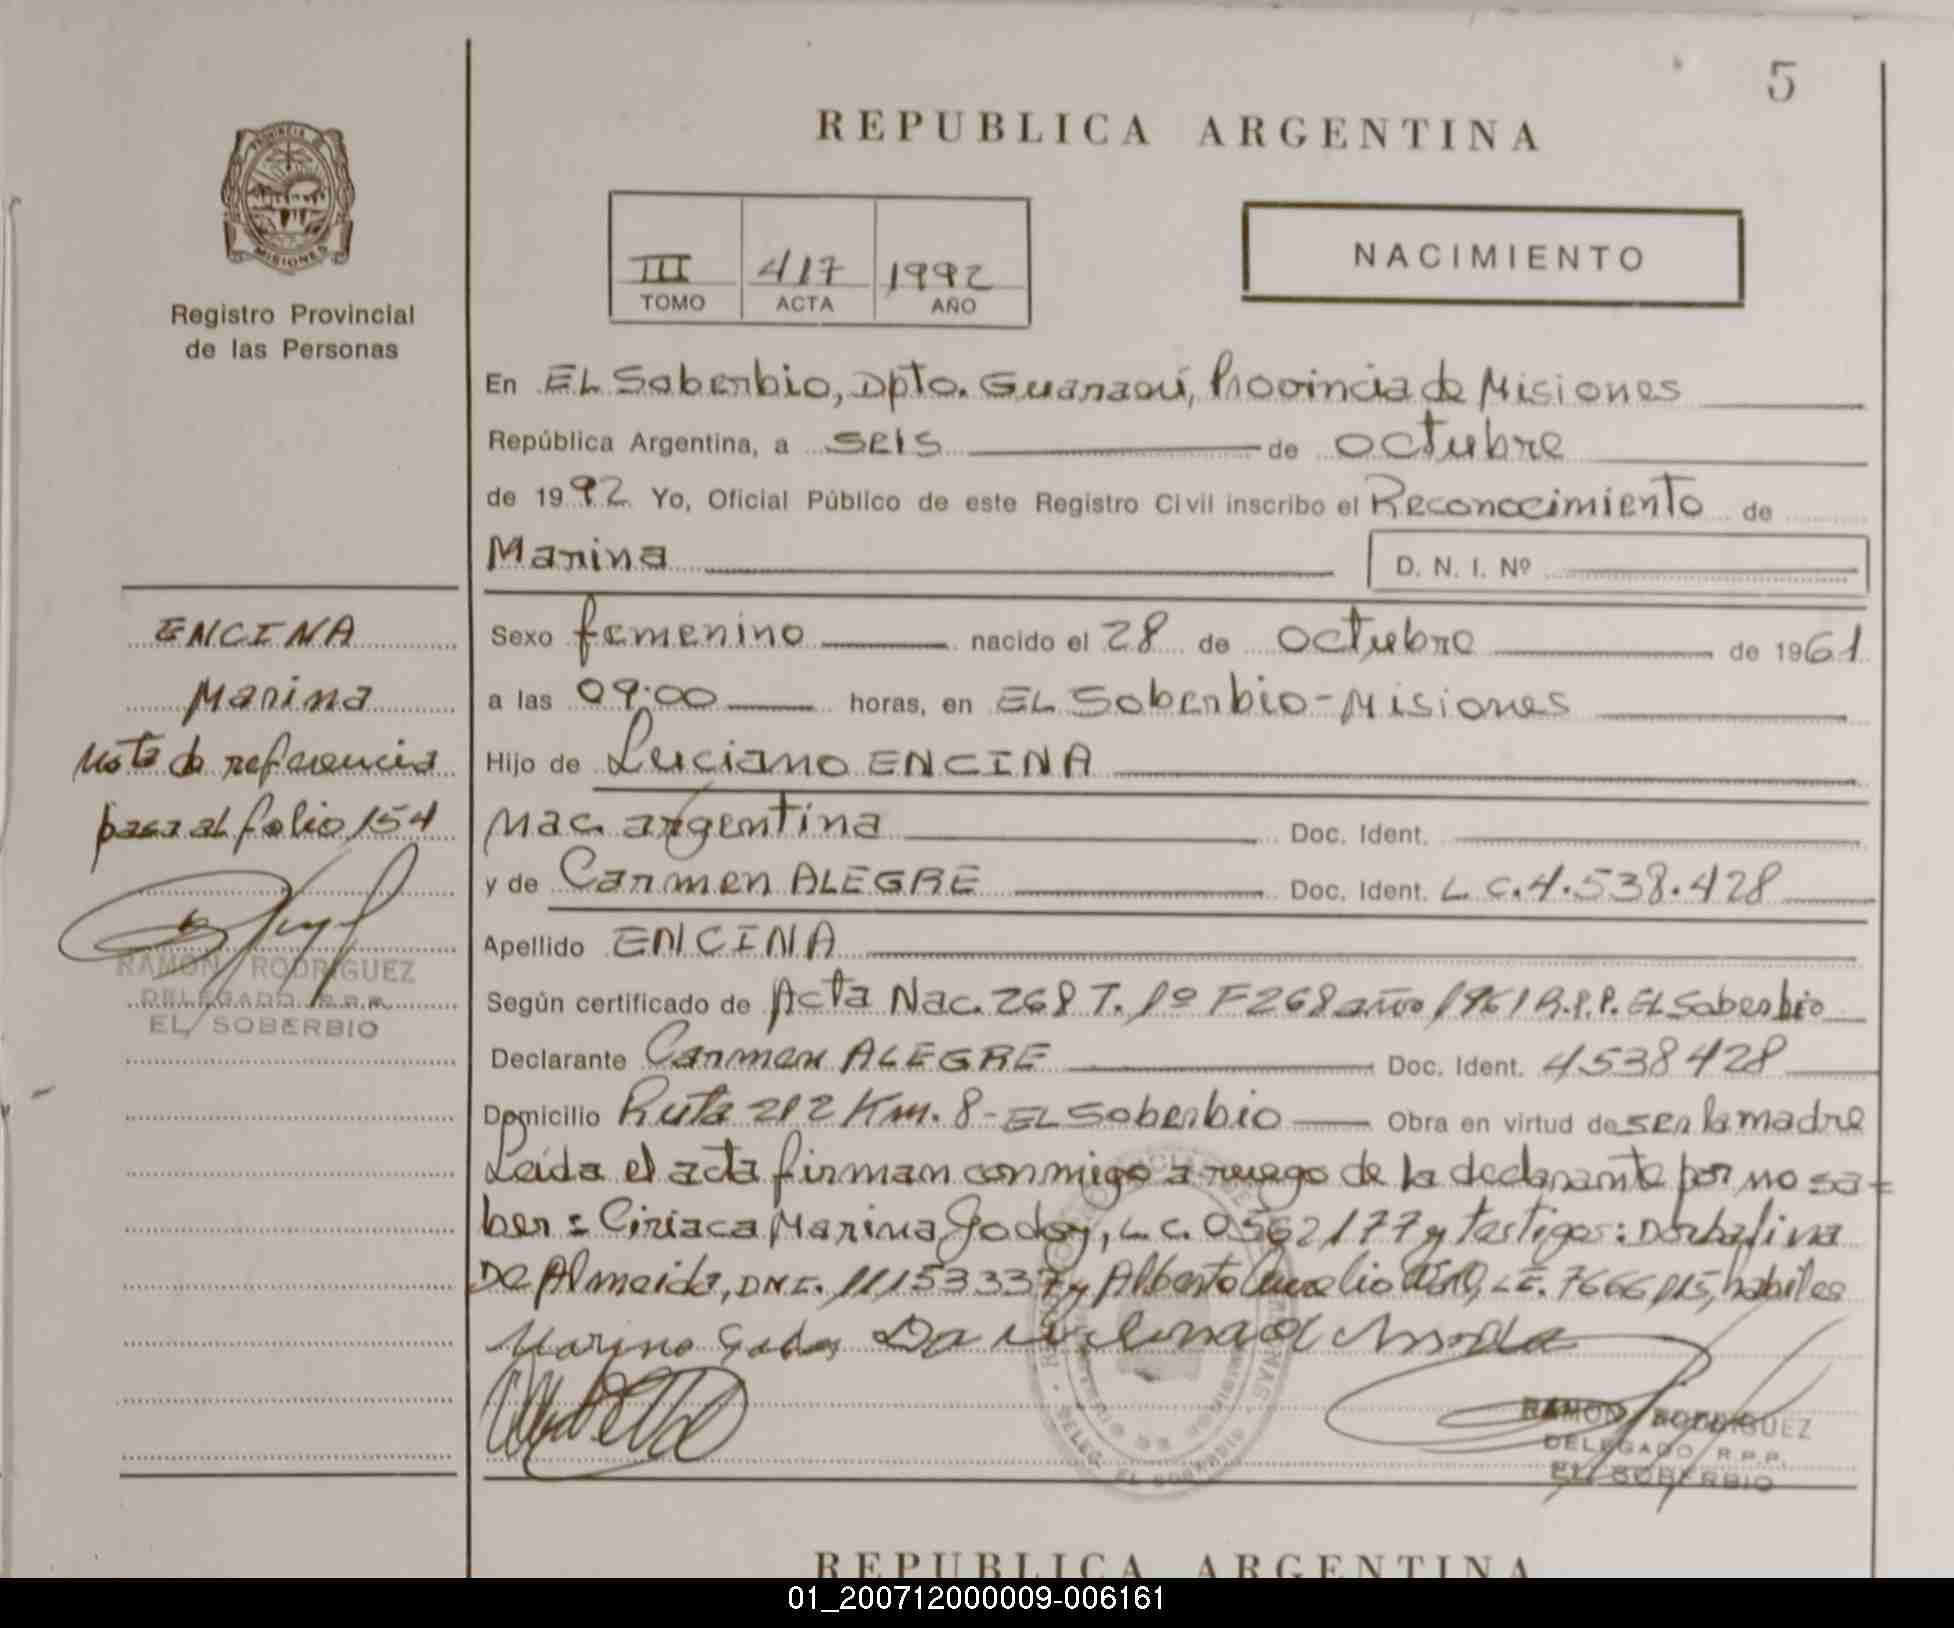 5
REPUBLICA ARGENTINA
PROVINCIA DE
MISIONES
Registro Provincial
de las Personas
III 417 1992
TOMO ACTA AÑO
NACIMIENTO
En EL Soberbio, Dpto. Guaraní, Provincia de Misiones
República Argentina, a seis de octubre
de 1992 Yo, Oficial Público de este Registro Civil inscribo el Reconocimiento de
Marina D. N. I. Nº
ENCINA
Marina
Nota de referencia
pasa al folio 154
RAMON RODRIGUEZ
DELEGADO R.P.P.
EL SOBERBIO
Sexo femenino nacido el 28 de octubre de 1961
a las 09:00 horas, en EL Soberbio - Misiones
Hijo de Luciano ENCINA
Nac. argentina Doc. Ident.
y de Carmen ALEGRE Doc. Ident. L.C. 4.538.428
Apellido ENCINA
Según certificado de Acta Nac. 268 T. 1º F 268 año 1961 R.P.P. EL Soberbio
Declarante Carmen ALEGRE Doc. Ident. 4538428
Domicilio Ruta 212 Km. 8 - EL Soberbio Obra en virtud de ser la madre
Leída el acta firman conmigo a ruego de la declarante por no sa=
ber: Ciriaca Marina Godoy, L.C. 0562177 y testigos: Dorbalina
De Almeida, DNI. 11153337 y Alberto Aurelio LE. 7666115, habiles
Marina Godoy
RAMON RODRIGUEZ
DELEGADO R.P.P.
EL SOBERBIO
REPUBLICA ARGENTINA
01_200712000009-006161